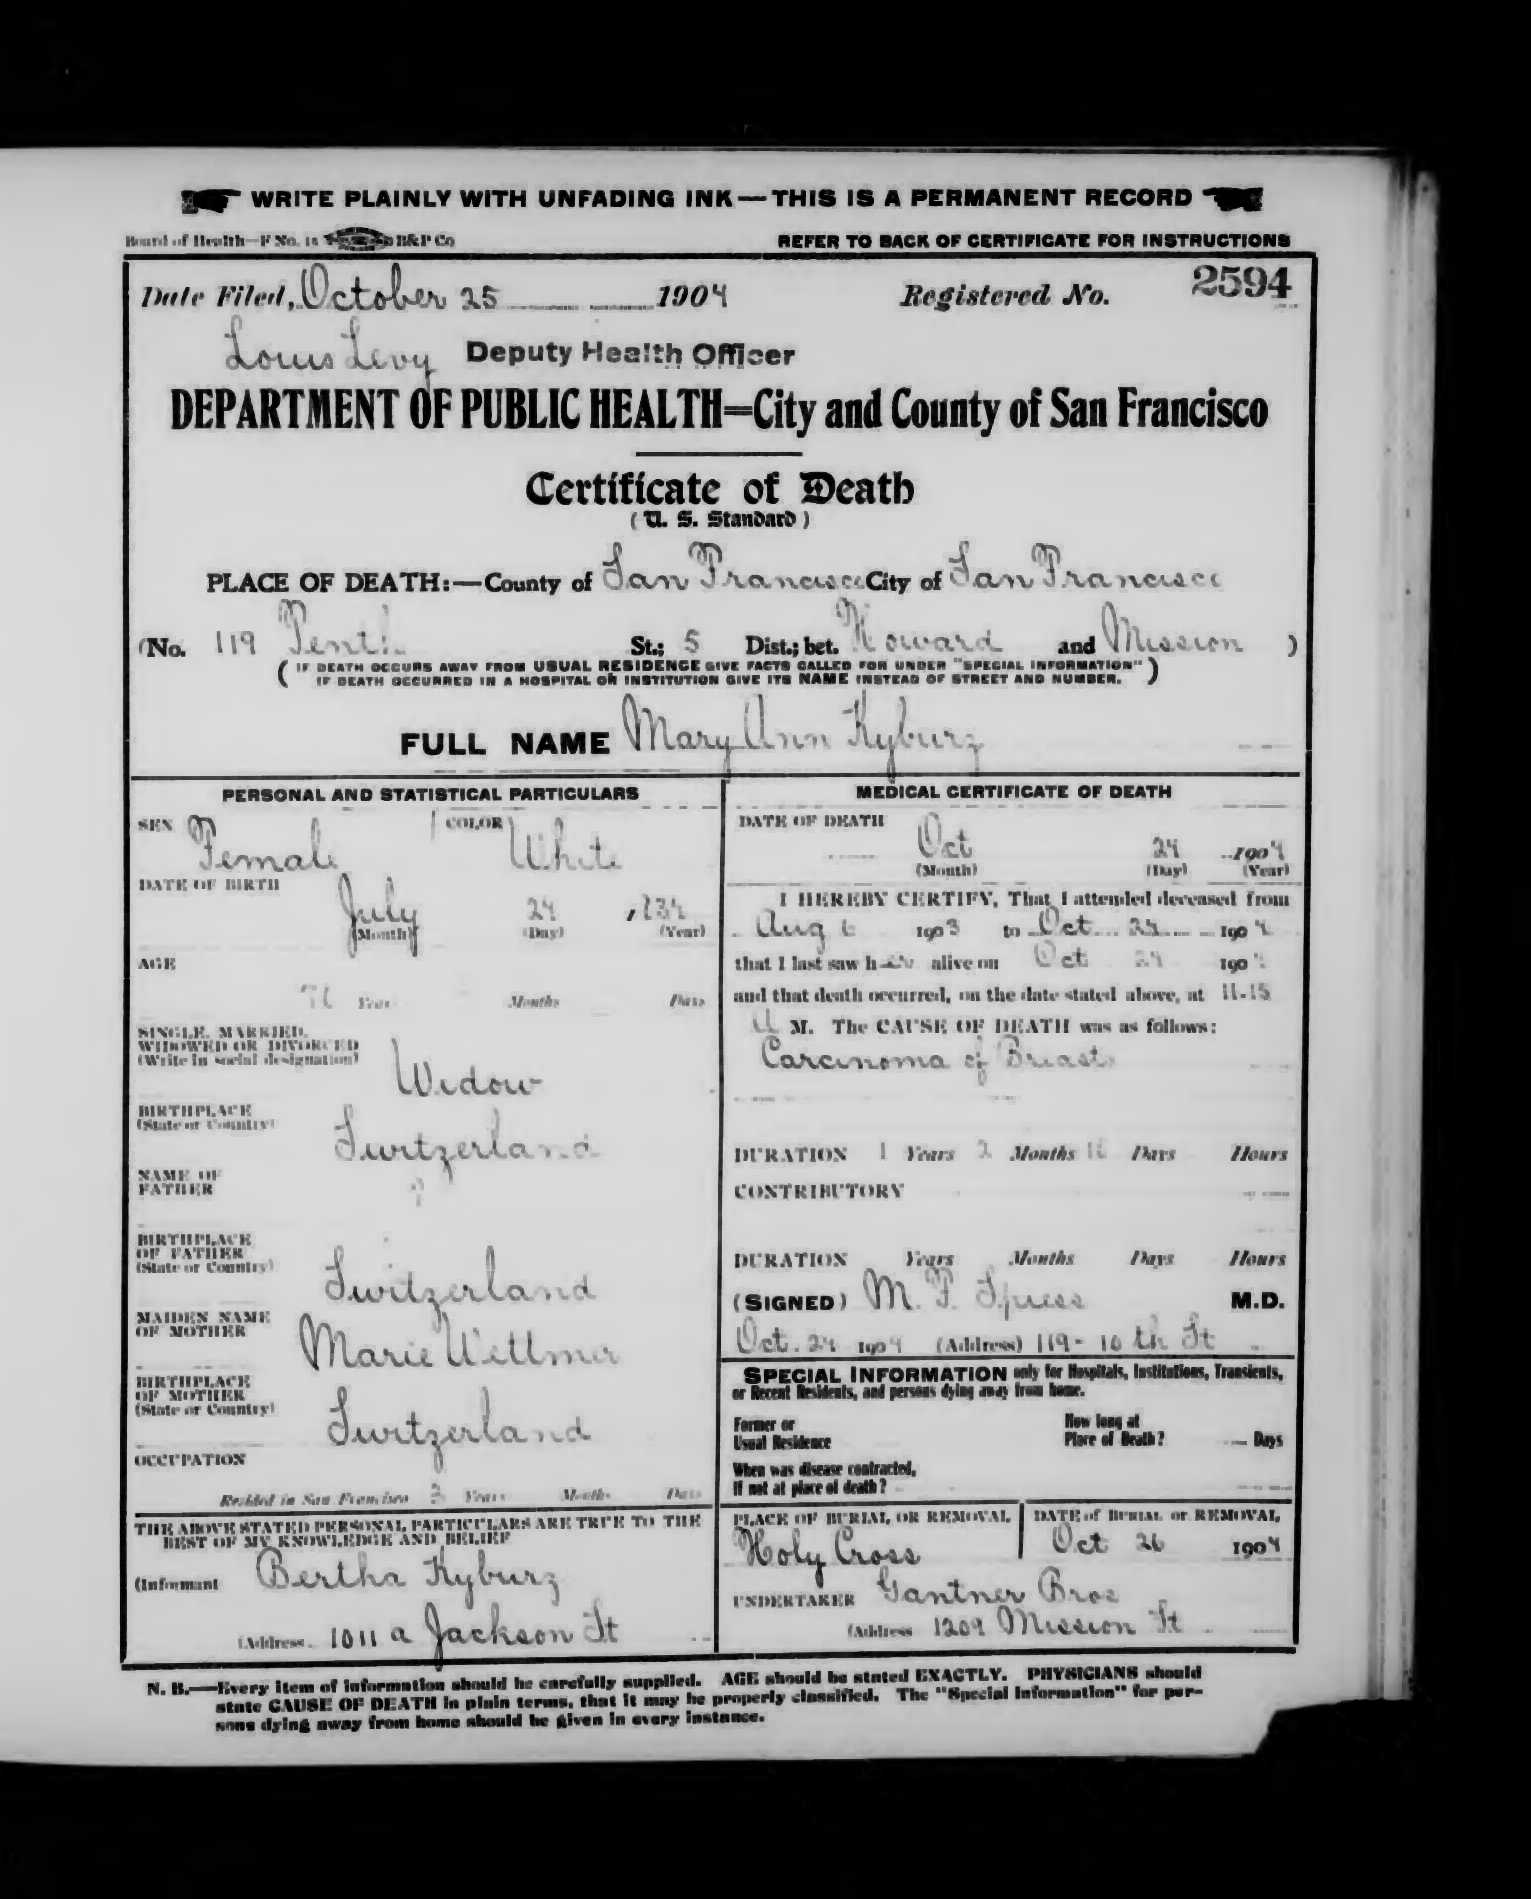 WRITE PLAINLY WITH UNFADING INK—THIS IS A PERMANENT RECORD
Board of Health—F No. 1x B&P Co
REFER TO BACK OF CERTIFICATE FOR INSTRUCTIONS
Date Filed, October 25 1904 Registered No. 2594
Louis Levy Deputy Health Officer
DEPARTMENT OF PUBLIC HEALTH=City and County of San Francisco
Certificate of Death
( U. S. Standard )
PLACE OF DEATH:—County of San Francisco City of San Francisco
(No. 119 Tenth St.; 5 Dist.; bet. Howard and Mission )
( IF DEATH OCCURS AWAY FROM USUAL RESIDENCE GIVE FACTS CALLED FOR UNDER "SPECIAL INFORMATION"
IF DEATH OCCURRED IN A HOSPITAL OR INSTITUTION GIVE ITS NAME INSTEAD OF STREET AND NUMBER. )
FULL NAME Mary Ann Kyburz
PERSONAL AND STATISTICAL PARTICULARS
SEX Female COLOR White
DATE OF BIRTH
July 24
(Month) (Day) (Year)
AGE
Years Months Days
SINGLE, MARRIED,
WIDOWED OR DIVORCED
(Write in social designation)
Widow
BIRTHPLACE
(State or Country)
Switzerland
NAME OF
FATHER
?
BIRTHPLACE
OF FATHER
(State or Country)
Switzerland
MAIDEN NAME
OF MOTHER
Marie Wellmer
BIRTHPLACE
OF MOTHER
(State or Country)
Switzerland
OCCUPATION
Resided in San Francisco 3 Years Months Days
THE ABOVE STATED PERSONAL PARTICULARS ARE TRUE TO THE
BEST OF MY KNOWLEDGE AND BELIEF
(Informant Bertha Kyburz
(Address. 1011 a Jackson St
MEDICAL CERTIFICATE OF DEATH
DATE OF DEATH
Oct 24 1904
(Month) (Day) (Year)
I HEREBY CERTIFY, That I attended deceased from
Aug 6 1903 to Oct 24 1904
that I last saw her alive on Oct 24 1904
and that death occurred, on the date stated above, at 11-15
A M. The CAUSE OF DEATH was as follows:
Carcinoma of Breast
DURATION 1 Years 2 Months Days Hours
CONTRIBUTORY
DURATION Years Months Days Hours
(SIGNED) M. F. Spiess M.D.
Oct. 24 1904 (Address) 119- 10 th St
SPECIAL INFORMATION only for Hospitals, Institutions, Transients,
or Recent Residents, and persons dying away from home.
Former or
Usual Residence
How long at
Place of Death? Days
When was disease contracted,
If not at place of death?
PLACE OF BURIAL OR REMOVAL
Holy Cross
DATE of BURIAL or REMOVAL
Oct 26 1904
UNDERTAKER Gantner Bros
(Address 1209 Mission St
N. B.—Every item of information should be carefully supplied. AGE should be stated EXACTLY. PHYSICIANS should
state CAUSE OF DEATH in plain terms, that it may be properly classified. The "Special Information" for per-
sons dying away from home should be given in every instance.